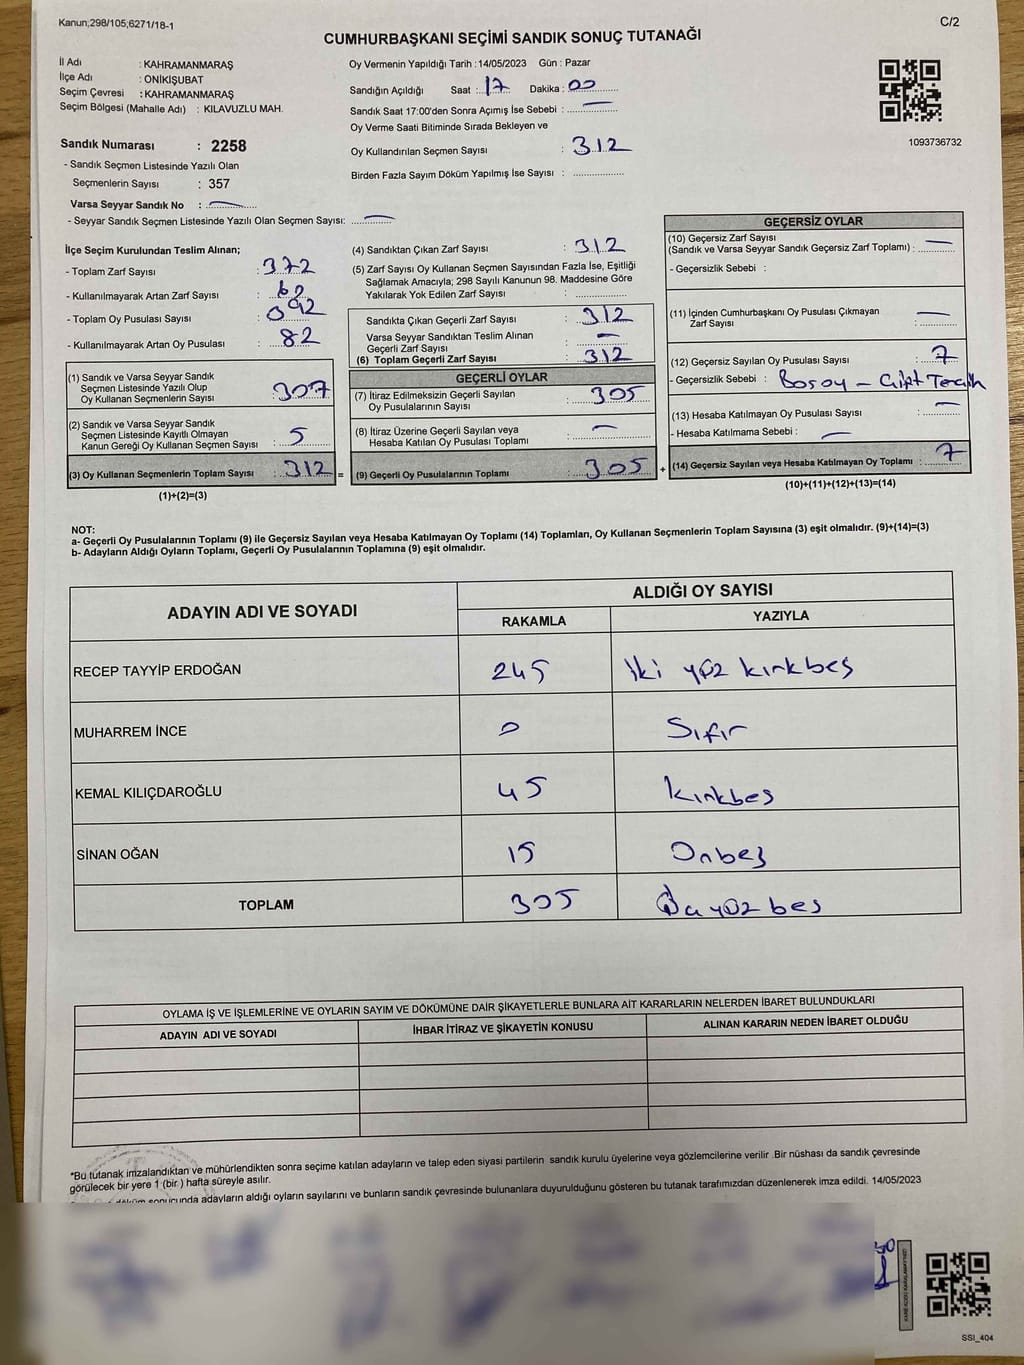 Kanun;298/105;6271/18-1
C/2
CUMHURBAŞKANI SEÇİMİ SANDIK SONUÇ TUTANAĞI
İl Adı : KAHRAMANMARAŞ
İlçe Adı : ONİKİŞUBAT
Seçim Çevresi : KAHRAMANMARAŞ
Seçim Bölgesi (Mahalle Adı) : KILAVUZLU MAH.
Sandık Numarası : 2258
- Sandık Seçmen Listesinde Yazılı Olan
Seçmenlerin Sayısı : 357
Varsa Seyyar Sandık No :
- Seyyar Sandık Seçmen Listesinde Yazılı Olan Seçmen Sayısı:
Oy Vermenin Yapıldığı Tarih :14/05/2023 Gün : Pazar
Sandığın Açıldığı Saat : 17 Dakika : 00
Sandık Saat 17:00'den Sonra Açımış İse Sebebi :
Oy Verme Saati Bitiminde Sırada Bekleyen ve
Oy Kullandırılan Seçmen Sayısı : 312
Birden Fazla Sayım Döküm Yapılmış İse Sayısı :
1093736732
İlçe Seçim Kurulundan Teslim Alınan;
- Toplam Zarf Sayısı : 372
- Kullanılmayarak Artan Zarf Sayısı :
- Toplam Oy Pusulası Sayısı :
- Kullanılmayarak Artan Oy Pusulası : 82
(1) Sandık ve Varsa Seyyar Sandık
Seçmen Listesinde Yazılı Olup
Oy Kullanan Seçmenlerin Sayısı : 307
(2) Sandık ve Varsa Seyyar Sandık
Seçmen Listesinde Kayıtlı Olmayan
Kanun Gereği Oy Kullanan Seçmen Sayısı : 5
(3) Oy Kullanan Seçmenlerin Toplam Sayısı : 312 =
(1)+(2)=(3)
(4) Sandıktan Çıkan Zarf Sayısı : 312
(5) Zarf Sayısı Oy Kullanan Seçmen Sayısından Fazla İse, Eşitliği
Sağlamak Amacıyla; 298 Sayılı Kanunun 98. Maddesine Göre
Yakılarak Yok Edilen Zarf Sayısı :
Sandıkta Çıkan Geçerli Zarf Sayısı : 312
Varsa Seyyar Sandıktan Teslim Alınan
Geçerli Zarf Sayısı :
(6) Toplam Geçerli Zarf Sayısı : 312
GEÇERLİ OYLAR
(7) İtiraz Edilmeksizin Geçerli Sayılan
Oy Pusulalarının Sayısı : 305
(8) İtiraz Üzerine Geçerli Sayılan veya
Hesaba Katılan Oy Pusulası Toplamı :
(9) Geçerli Oy Pusulalarının Toplamı : 305 +
GEÇERSİZ OYLAR
(10) Geçersiz Zarf Sayısı
(Sandık ve Varsa Seyyar Sandık Geçersiz Zarf Toplamı) :
- Geçersizlik Sebebi :
(11) İçinden Cumhurbaşkanı Oy Pusulası Çıkmayan
Zarf Sayısı :
(12) Geçersiz Sayılan Oy Pusulası Sayısı : 7
- Geçersizlik Sebebi :
(13) Hesaba Katılmayan Oy Pusulası Sayısı :
- Hesaba Katılmama Sebebi :
(14) Geçersiz Sayılan veya Hesaba Katılmayan Oy Toplamı : 7
(10)+(11)+(12)+(13)=(14)
NOT:
a- Geçerli Oy Pusulalarının Toplamı (9) ile Geçersiz Sayılan veya Hesaba Katılmayan Oy Toplamı (14) Toplamları, Oy Kullanan Seçmenlerin Toplam Sayısına (3) eşit olmalıdır. (9)+(14)=(3)
b- Adayların Aldığı Oyların Toplamı, Geçerli Oy Pusulalarının Toplamına (9) eşit olmalıdır.
ADAYIN ADI VE SOYADI
ALDIĞI OY SAYISI
RAKAMLA YAZIYLA
RECEP TAYYİP ERDOĞAN 245 İki yüz kırkbeş
MUHARREM İNCE 0 Sıfır
KEMAL KILIÇDAROĞLU 45 Kırkbeş
SİNAN OĞAN 15 Onbeş
TOPLAM 305
OYLAMA İŞ VE İŞLEMLERİNE VE OYLARIN SAYIM VE DÖKÜMÜNE DAİR ŞİKAYETLERLE BUNLARA AİT KARARLARIN NELERDEN İBARET BULUNDUKLARI
ADAYIN ADI VE SOYADI İHBAR İTİRAZ VE ŞİKAYETİN KONUSU ALINAN KARARIN NEDEN İBARET OLDUĞU
*Bu tutanak imzalandıktan ve mühürlendikten sonra seçime katılan adayların ve talep eden siyasi partilerin sandık kurulu üyelerine veya gözlemcilerine verilir .Bir nüshası da sandık çevresinde
görülecek bir yere 1 (bir ) hafta süreyle asılır.
sonucunda adayların aldığı oyların sayılarını ve bunların sandık çevresinde bulunanlara duyurulduğunu gösteren bu tutanak tarafımızdan düzenlenerek imza edildi. 14/05/2023
SSI_404